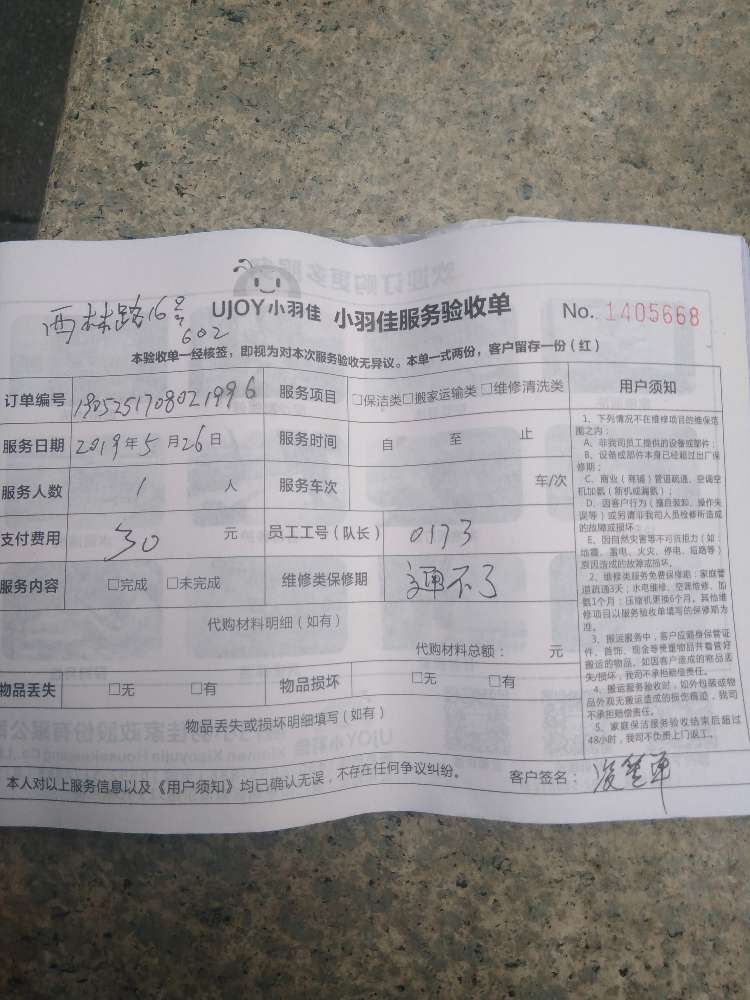 西林路16号
602
UJOY小羽佳 小羽佳服务验收单 No. 1405668
本验收单一经核签，即视为对本次服务验收无异议。本单一式两份，客户留存一份（红）
订单编号 190525170802199996 服务项目 □保洁类□搬家运输类□维修清洗类 用户须知
服务日期 2019年5月26日 服务时间 自 至 止
服务人数 1 人 服务车次 车/次
支付费用 30 元 员工工号（队长） 0173
服务内容 □完成 □未完成 维修类保修期 通不了
代购材料明细（如有）
代购材料总额： 元
物品丢失 □无 □有 物品损坏 □无 □有
物品丢失或损坏明细填写（如有）
1、下列情况不在维修项目的维保范
围之内：
A、非我司员工提供的设备或部件；
B、设备或部件本身已经超过出厂保
修期；
C、商业（商铺）管道疏通、空调空
机加氨（新机或漏氨）；
D、因客户行为（擅自装卸、操作失
误等）或另请非我司人员检修所造成
的故障或损坏；
E、因自然灾害等不可抗拒力（如：
地震、雷电、火灾、停电、短路等）
原因造成的故障或损坏。
2、维修类服务免费保修期：家庭管
道疏通3天；水电维修、空调维修、加
氨1个月；压缩机更换6个月。其他维
修项目以服务验收单填写的保修期为
准。
3、搬运服务中，客户应随身保管证
件、首饰、现金等贵重物品并看管好
搬运的物品。如因客户造成的物品丢
失/损坏，我司不承担赔偿责任。
4、搬运服务验收时，如外包装或物
品外观无搬运造成的损伤痕迹，我司
不承担赔偿责任。
5、家庭保洁服务验收结束后超过
48小时，我司不负责上门返工。
本人对以上服务信息以及《用户须知》均已确认无误，不存在任何争议纠纷。 客户签名：